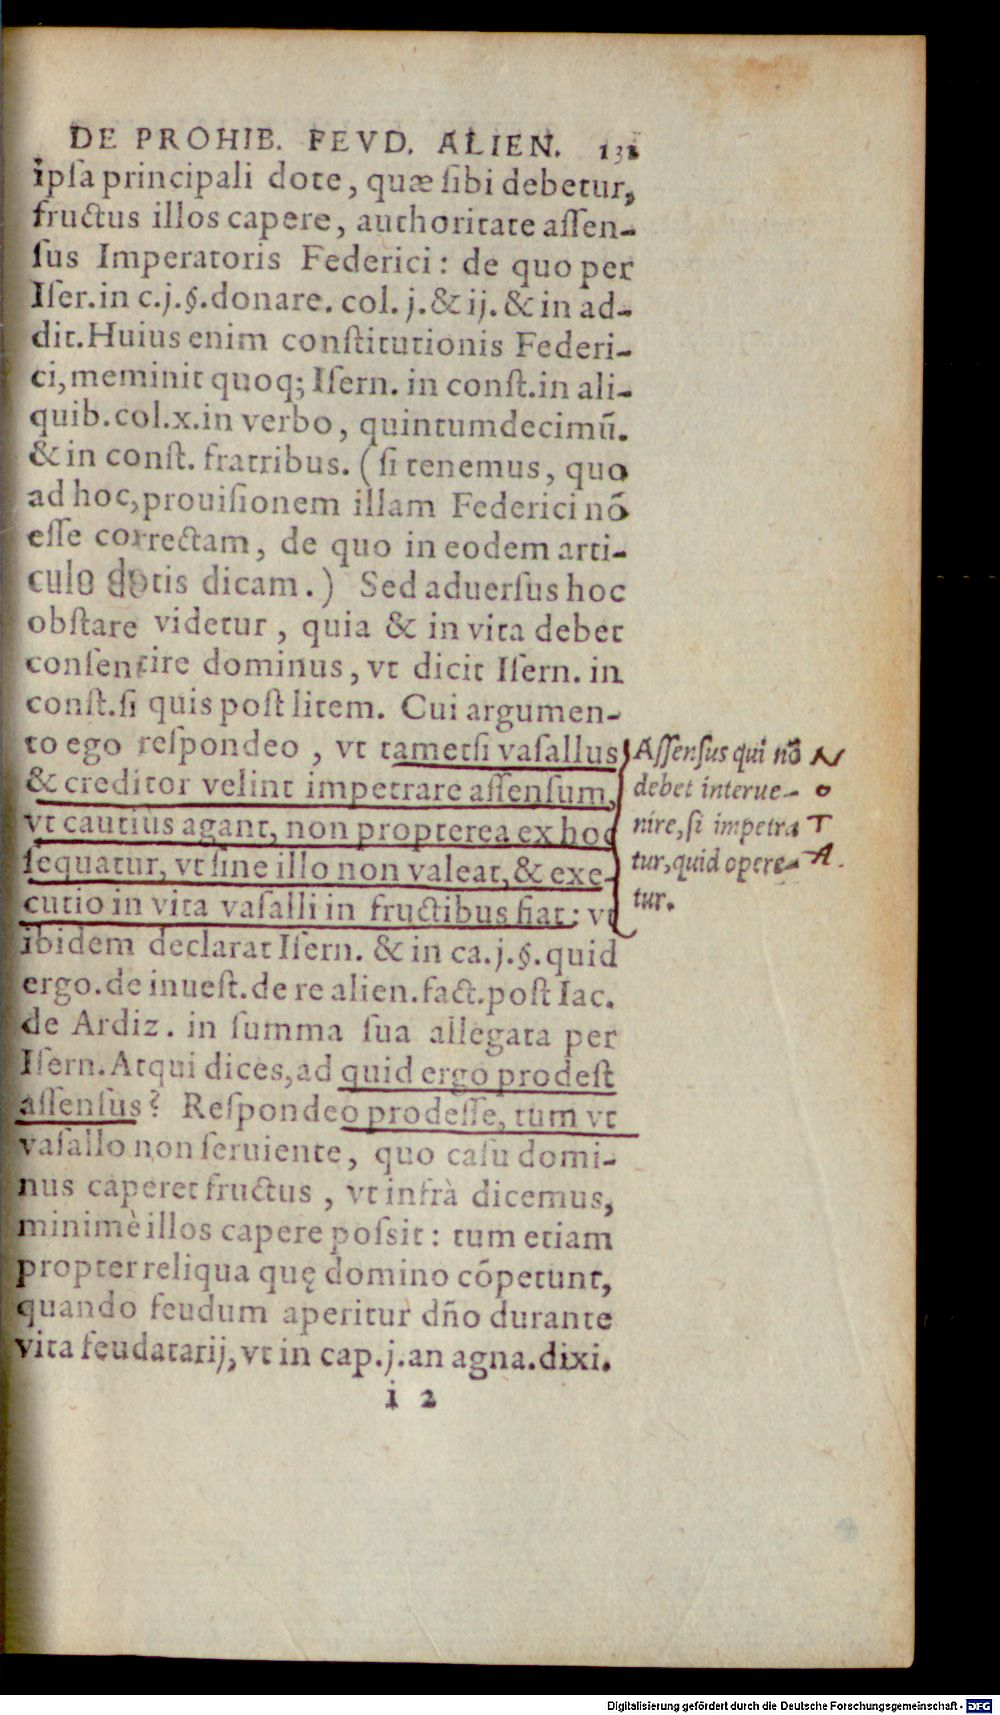 DE PROHIB. FEVD. ALIEN. 131
ipſa principali dote, quæ ſibi debetur,
fructus illos capere, authoritate aſſen-
ſus Imperatoris Federici: de quo per
Iſer. in c.j.§.donare. col. j. & ij. & in ad-
dit. Huius enim conſtitutionis Federi-
ci, meminit quoq; Iſern. in conſt. in ali-
quib. col. x. in verbo, quintumdecimū.
& in conſt. fratribus. (ſi tenemus, quo
ad hoc, prouiſionem illam Federici nō
eſſe correctam, de quo in eodem arti-
culo dotis dicam.) Sed aduerſus hoc
obſtare videtur, quia & in vita debet
conſentire dominus, vt dicit Iſern. in
conſt. ſi quis poſt litem. Cui argumen-
to ego reſpondeo, vt tametſi vaſallus
& creditor velint impetrare aſſenſum,
vt cautius agant, non propterea ex hoc
ſequatur, vt ſine illo non valeat, & exe-
cutio in vita vaſalli in fructibus fiat: vt
ibidem declarat Iſern. & in ca.j.§.quid
ergo. de inueſt. de re alien. fact. poſt Iac.
de Ardiz. in ſumma ſua allegata per
Iſern. Atqui dices, ad quid ergo prodeſt
aſſenſus? Reſpondeo prodeſſe, tum vt
vaſallo non ſeruiente, quo caſu domi-
nus caperet fructus, vt infrà dicemus,
minimè illos capere poſsit: tum etiam
propter reliqua quę domino cōpetunt,
quando feudum aperitur dn̄o durante
vita feudatarij, vt in cap.j. an agna. dixi.
i 2
Aſſenſus qui nō
debet interue-
nire, ſi impetra
tur, quid opere-
tur.
N
O
T
A.
Digitalisierung gefördert durch die Deutsche Forschungsgemeinschaft - DFG